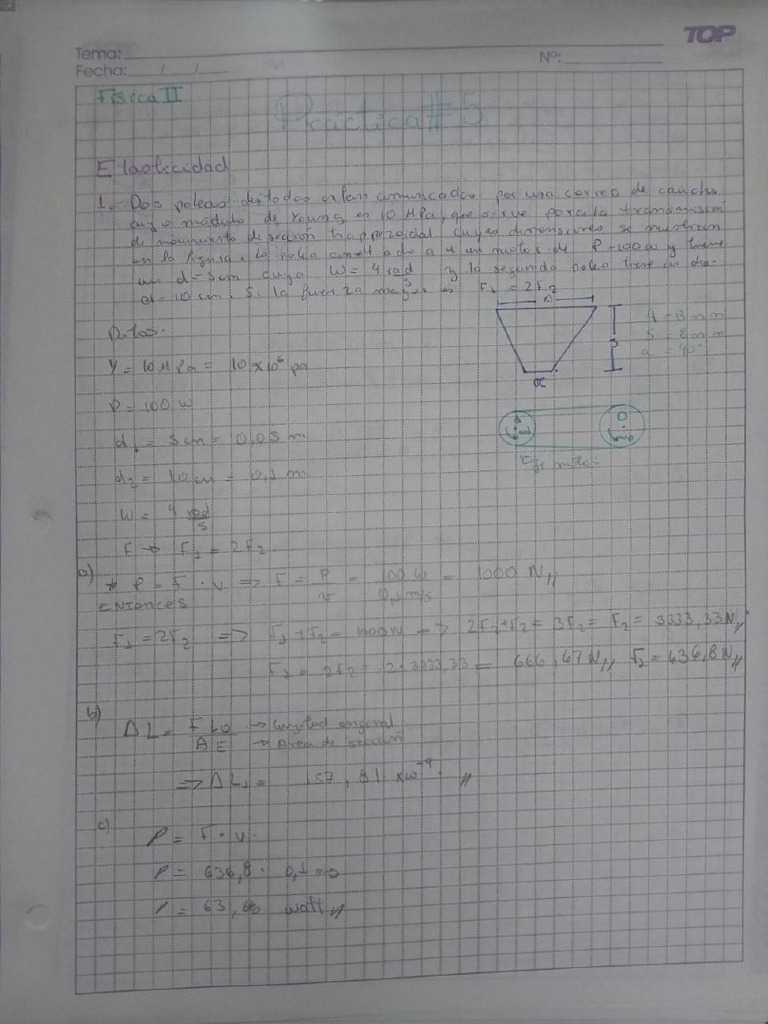 TOP
Tema:
Nº:
Fecha: / /
Física II
Práctica #5
Elasticidad
1. Dos poleas dentadas estan comunicadas por una correa de caucho
cuyo módulo de Young es 10 MPa, que sirve para la transmisión
de movimiento de sección trapezoidal cuyas dimensiones se muestran
en la figura. La polea conectada a un motor de P=100 w y tiene
un d=5cm cuya W=4 rad/s y la segunda polea tiene un
d=10 cm. Si la fuerza mayor es F1 = 2F2
Datos:
Y = 10 MPa = 10 x10⁶ pa
P = 100 W
d1 = 5 cm = 0,05 m
d2 = 10 cm = 0,1 m
W = 4 rad/s
F → F1 = 2F2
S = 8 mm
α
a)
* P = F · v => F = P/v = 100 w / 0,1 m/s = 1000 N//
ENTONCES
F1 = 2F2 => F1 + F2 = => 2F2+F2 = 3F2 = F2 = 3333,33N//
F1 = 2F2 = 2·3333,33 = 666,67 N// = 636,8 N//
b)
ΔL = F Lo / A E → Longitud original
→ Area de sección
=> ΔL1 = 157,81
c)
P = F · v
P = 636,8 ·
P = 63,68 watt//